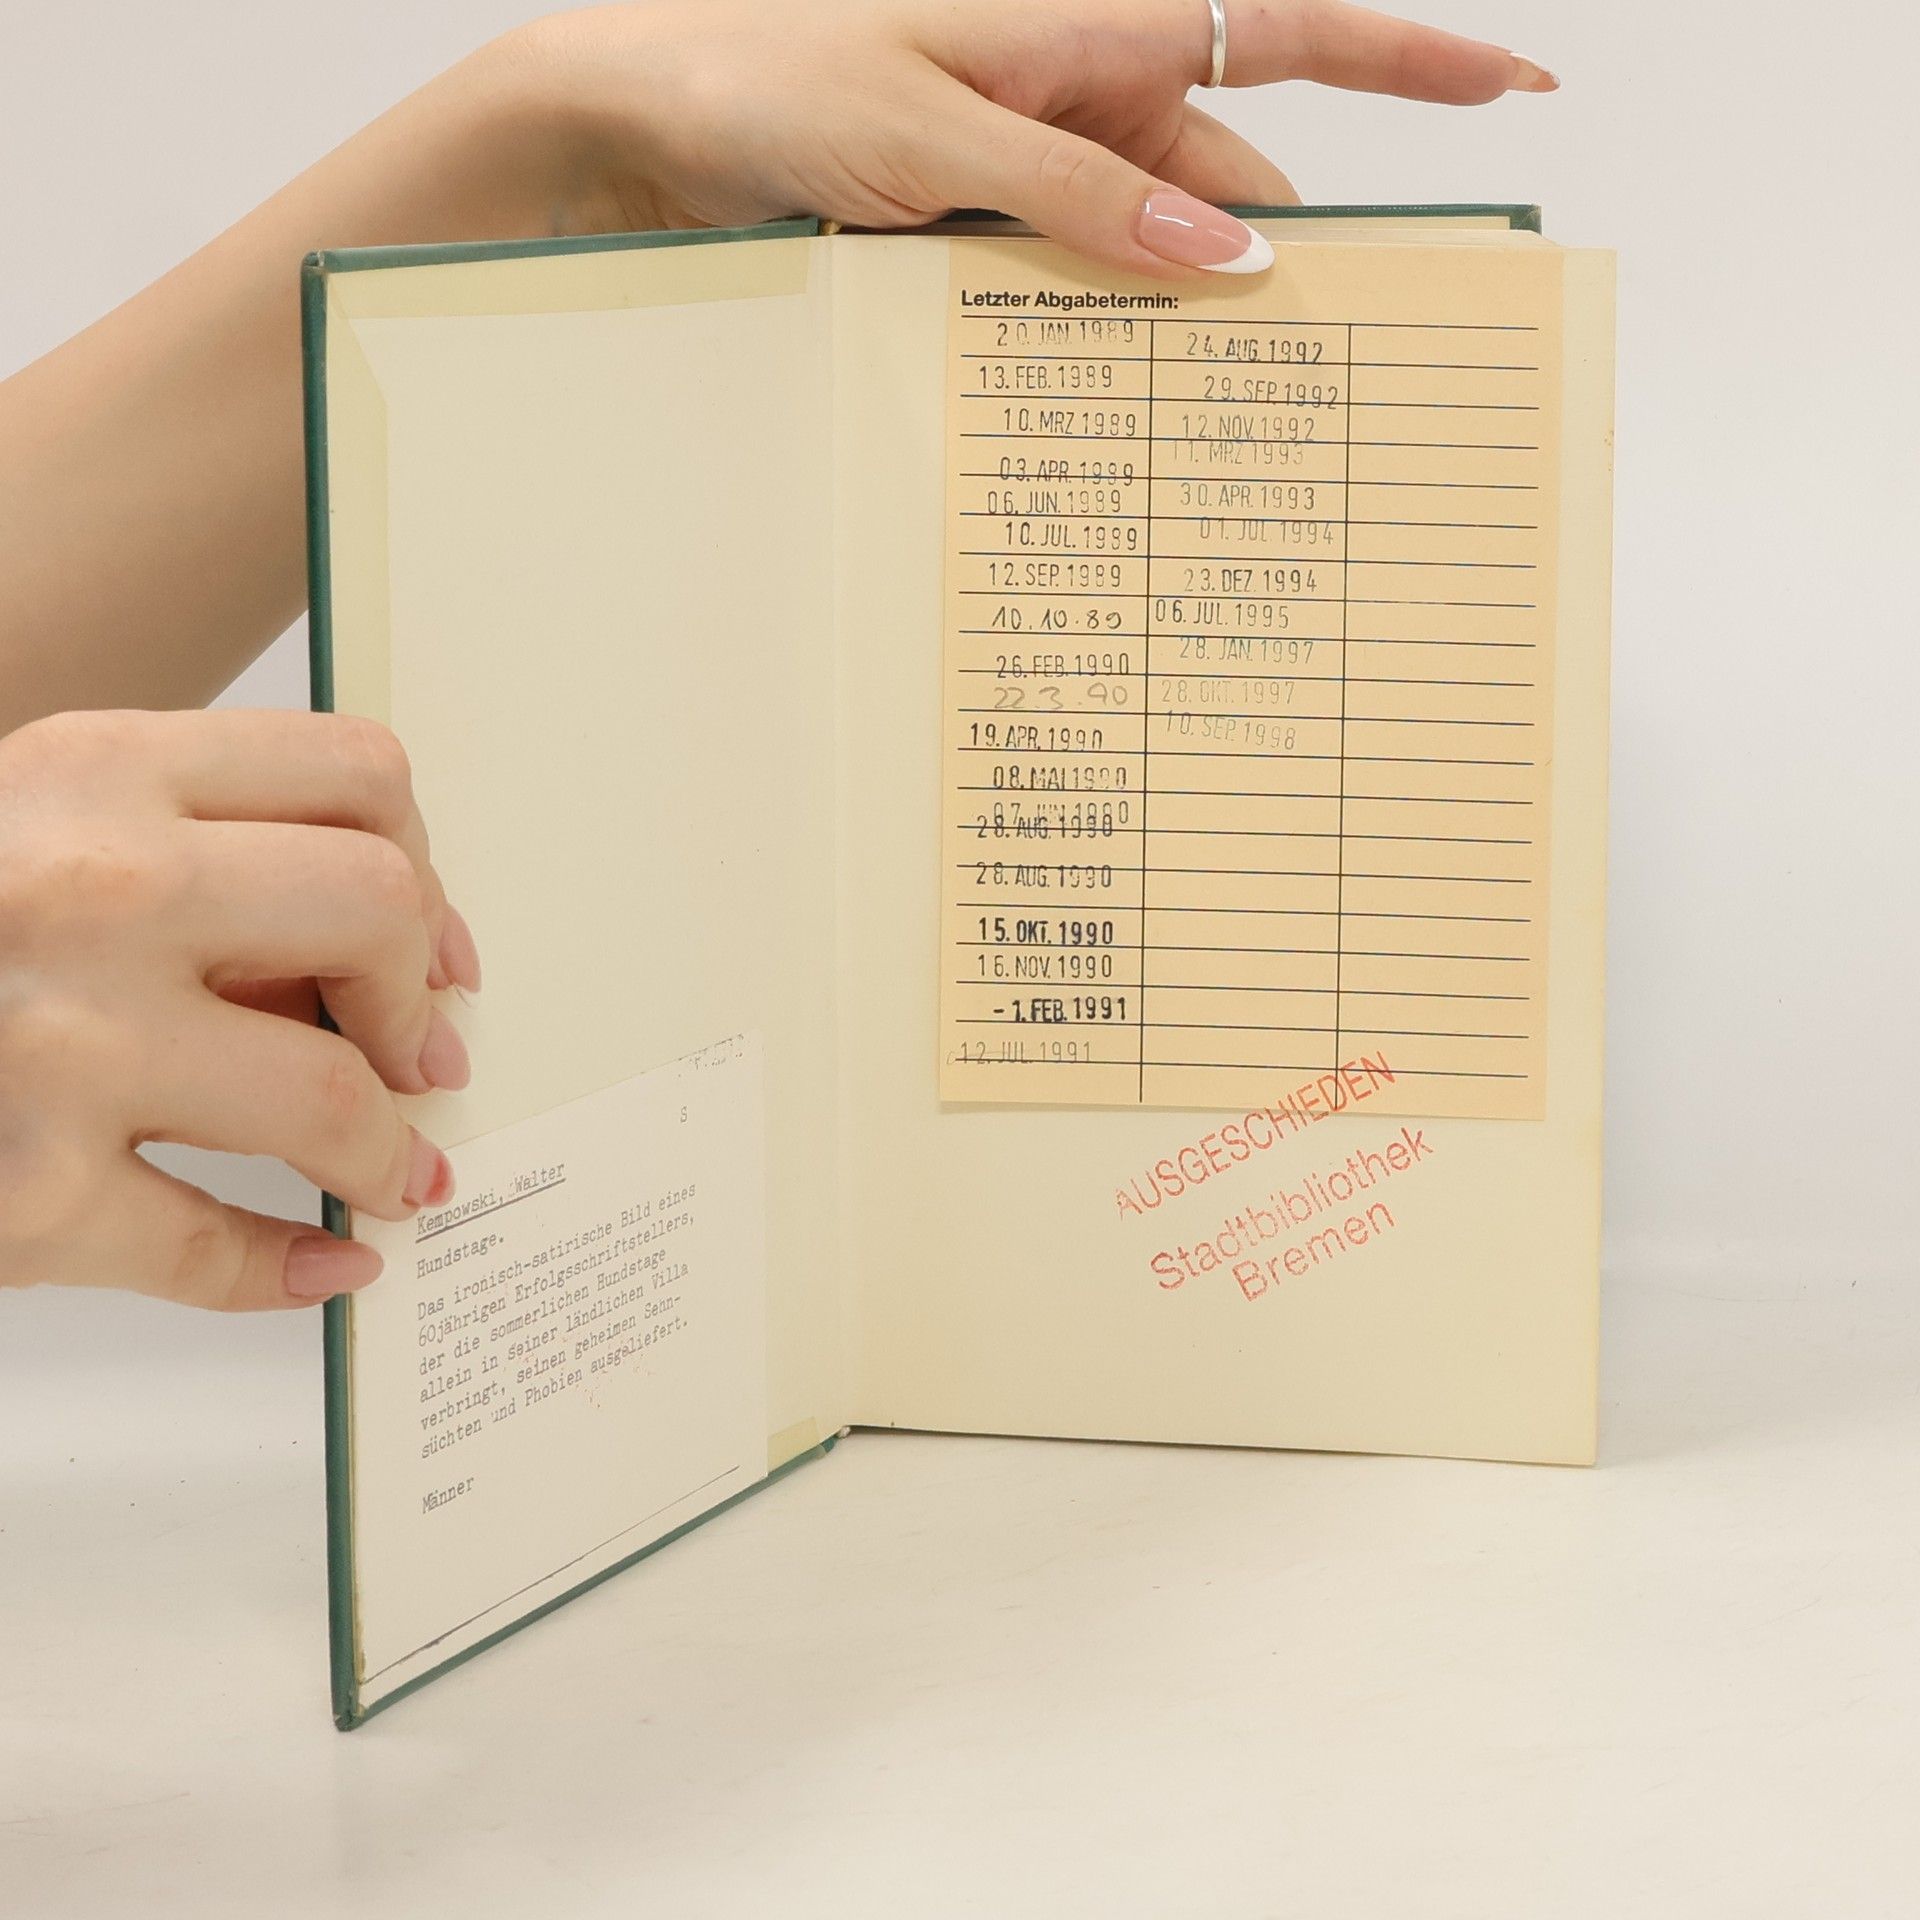 S
Kempowski, Walter
Hundstage.
Das ironisch-satirische Bild eines
60jährigen Erfolgsschriftstellers,
der die sommerlichen Hundstage
allein in seiner ländlichen Villa
verbringt, seinen geheimen Sehn-
süchten und Phobien ausgeliefert.
Männer
Letzter Abgabetermin:
20. JAN. 1989
13. FEB. 1989
10. MRZ 1989
03. APR. 1989
06. JUN. 1989
10. JUL. 1989
12. SEP. 1989
10.10.89
26. FEB. 1990
22.3.90
19. APR. 1990
08. MAI 1990
07. JUN 1990
28. AUG. 1990
28. AUG. 1990
15. OKT. 1990
16. NOV. 1990
- 1. FEB. 1991
12. JUL. 1991
24. AUG. 1992
29. SEP. 1992
12. NOV. 1992
11. MRZ 1993
30. APR. 1993
01. JUL. 1994
23. DEZ. 1994
06. JUL. 1995
28. JAN. 1997
28. OKT. 1997
10. SEP. 1998
AUSGESCHIEDEN
Stadtbibliothek
Bremen